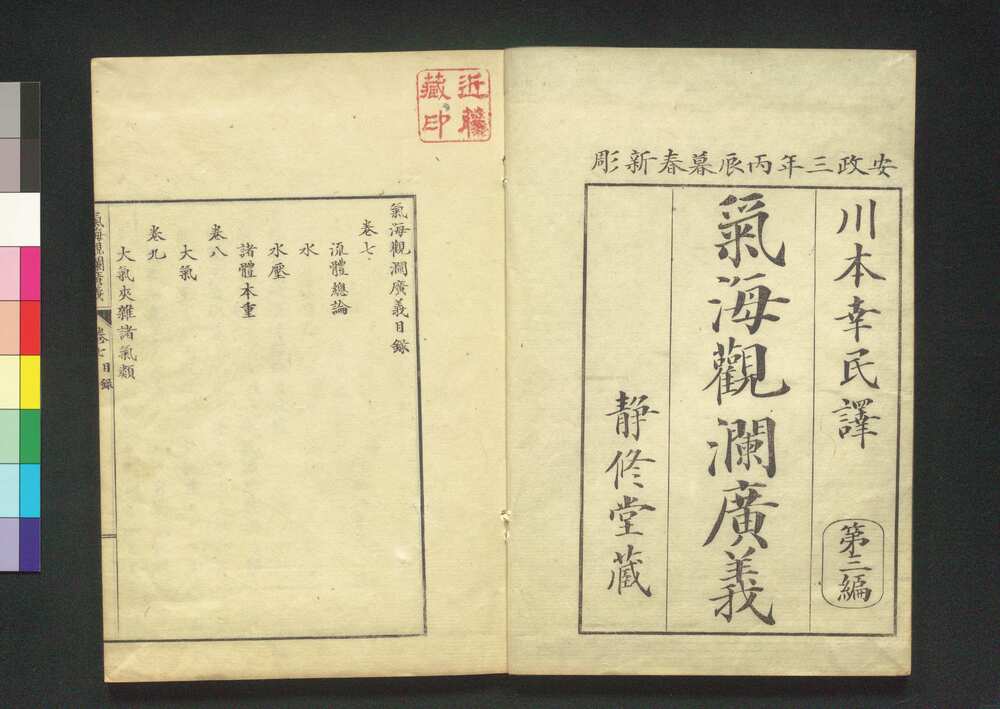 安政三年丙辰暮春新彫
川本幸民譯
第三編
氣海觀瀾廣義
靜修堂藏
近藤
藏印
氣海觀瀾廣義目録
卷七
流體總論
水
水壓
諸體本重
卷八
大氣
卷九
大氣夾雜諸氣類
氣海觀瀾廣義
卷七目録